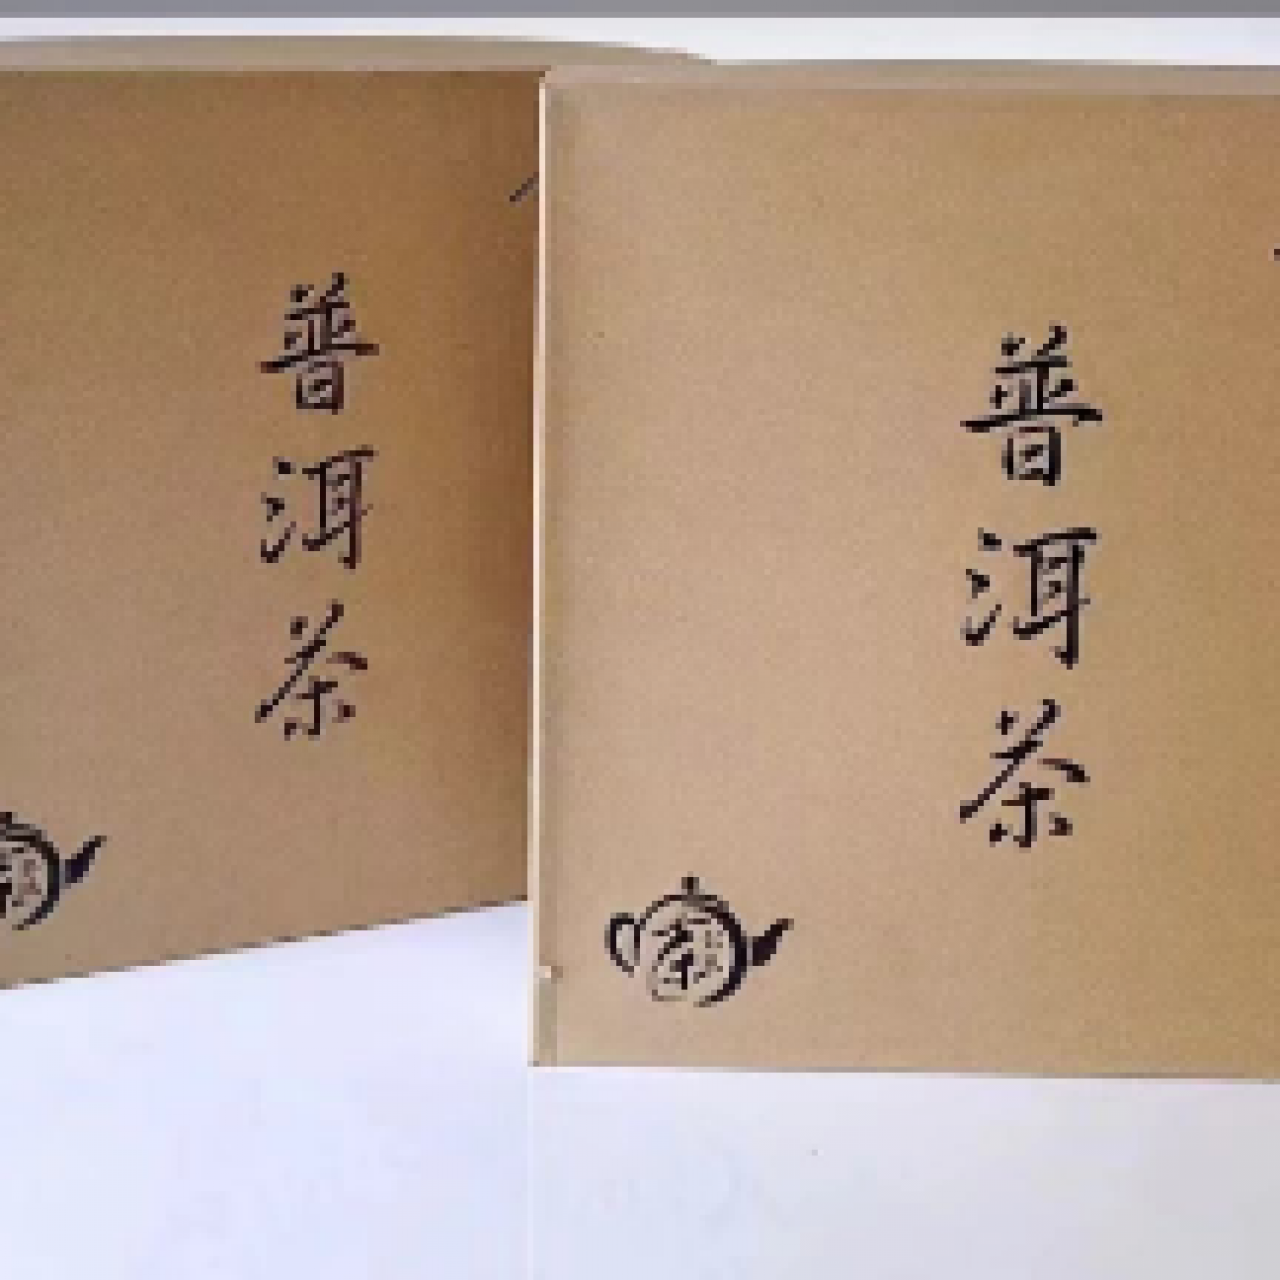 普洱茶
普洱茶
茶